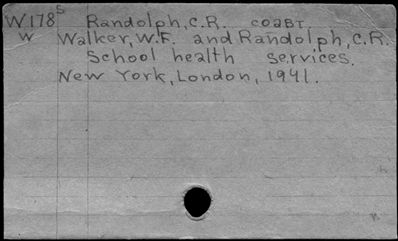 W178 s Randolph, C.R. соавт.
w Walker, W.F. and Randolph, C.R.
School health services.
New York, London, 1941.